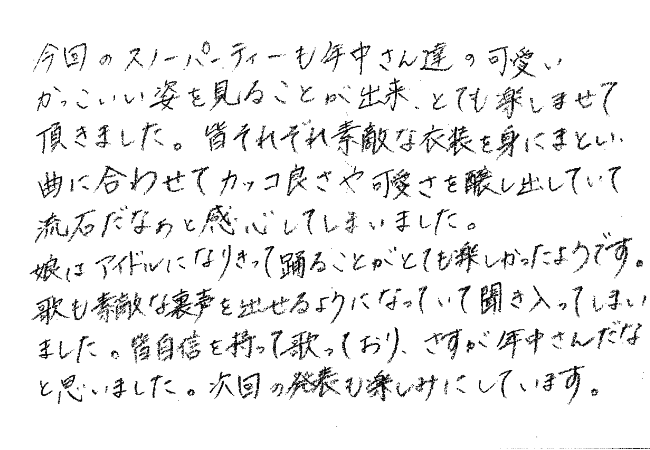 今回のスノーパーティーも年中さん達の可愛い
かっこいい姿を見ることが出来、とても楽しませて
頂きました。皆それぞれ素敵な衣装を身にまとい、
曲に合わせてカッコ良さや可愛さを醸し出していて
流石だなぁと感心してしまいました。
娘はアイドルになりきって踊ることがとても楽しかったようです。
歌も素敵な裏声を出せるようになっていて聞き入ってしまい
ました。皆自信を持って歌っており、さすが年中さんだな
と思いました。次回の発表も楽しみにしています。